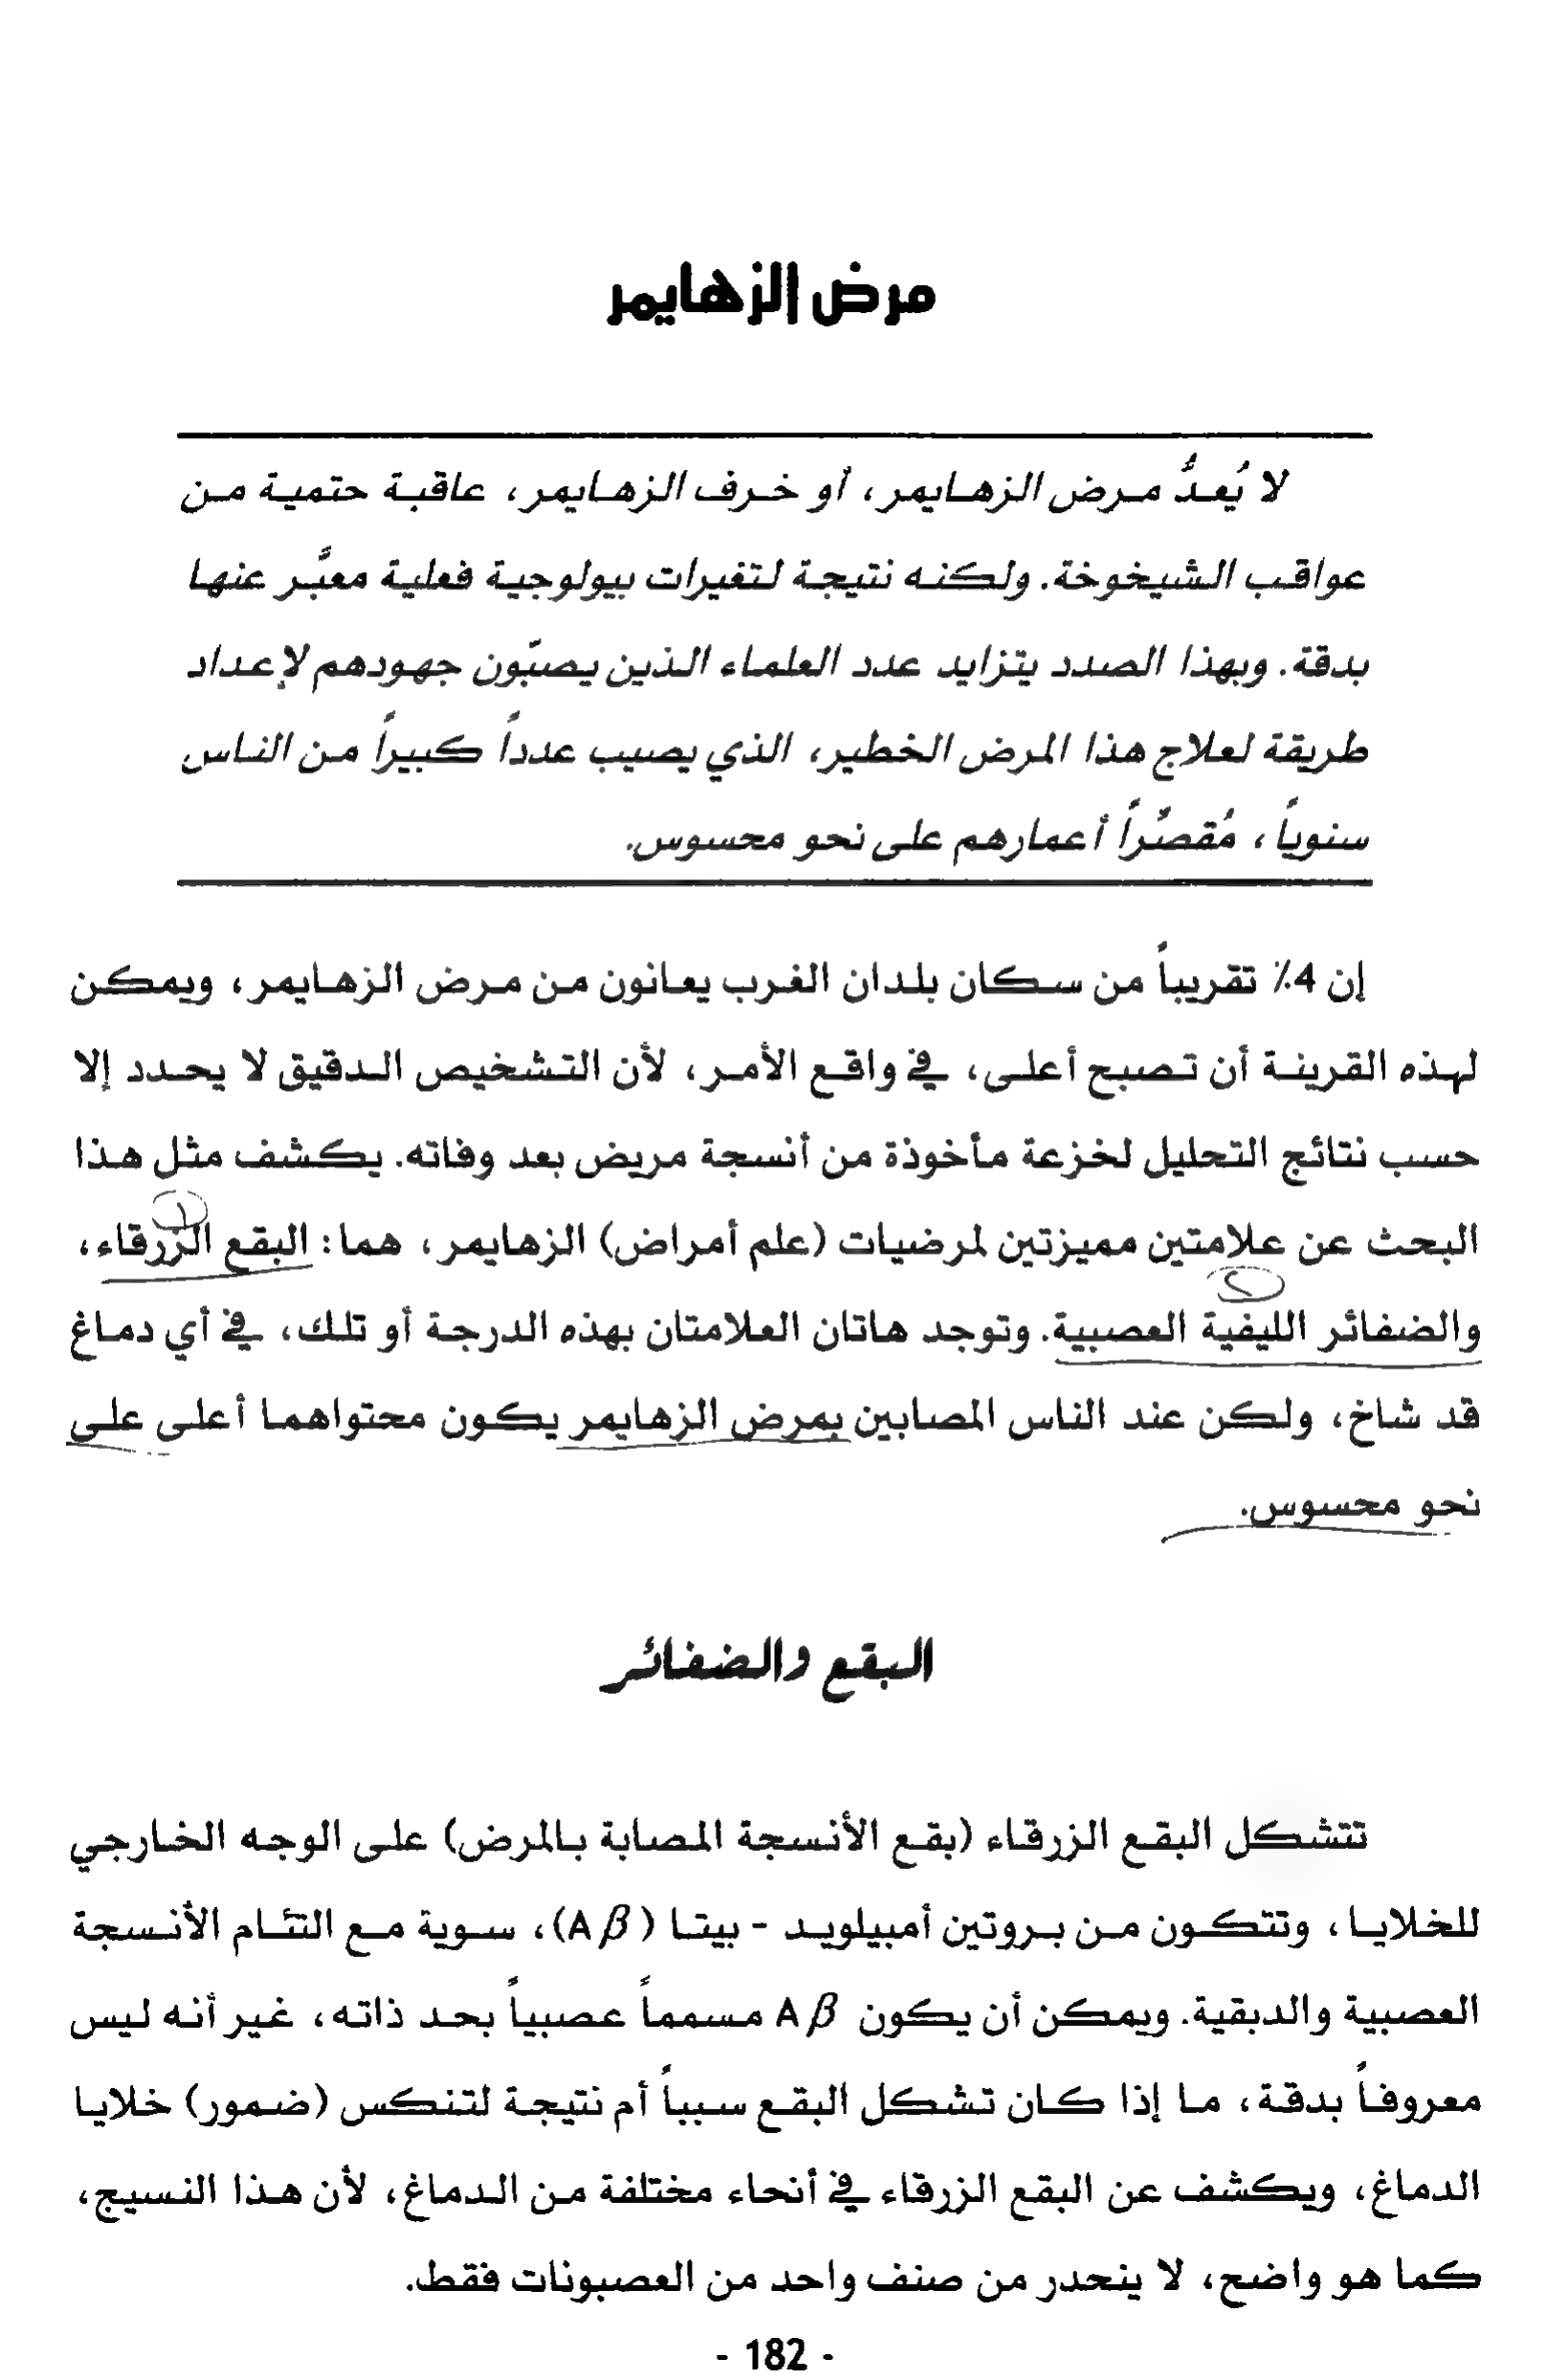 مرض الزهايمر
لا يُعدُّ مرض الزهايمر، أو خرف الزهايمر، عاقبة حتمية من
عواقب الشيخوخة. ولكنه نتيجة لتغيرات بيولوجية فعلية معبَّر عنها
بدقة. وبهذا الصدد يتزايد عدد العلماء الذين يصبّون جهودهم لإعداد
طريقة لعلاج هذا المرض الخطير، الذي يصيب عدداً كبيراً من الناس
سنوياً، مُقصِّراً أعمارهم على نحو محسوس.
إن 4٪ تقريباً من سكان بلدان الغرب يعانون من مرض الزهايمر، ويمكن
لهذه القرينة أن تصبح أعلى، في واقع الأمر، لأن التشخيص الدقيق لا يحدد إلا
حسب نتائج التحليل لخزعة مأخوذة من أنسجة مريض بعد وفاته. يكشف مثل هذا
البحث عن علامتين مميزتين لمرضيات (علم أمراض) الزهايمر، هما: البقع الزرقاء،
والضفائر الليفية العصبية. وتوجد هاتان العلامتان بهذه الدرجة أو تلك، في أي دماغ
قد شاخ، ولكن عند الناس المصابين بمرض الزهايمر يكون محتواهما أعلى على
نحو محسوس.
البقع والضفائر
تتشكل البقع الزرقاء (بقع الأنسجة المصابة بالمرض) على الوجه الخارجي
للخلايا، وتتكون من بروتين أمبيلويد - بيتا (Aβ)، سوية مع التئام الأنسجة
العصبية والدبقية. ويمكن أن يكون Aβ مسمماً عصبياً بحد ذاته، غير أنه ليس
معروفاً بدقة، ما إذا كان تشكل البقع سبباً أم نتيجة لتنكس (ضمور) خلايا
الدماغ، ويكشف عن البقع الزرقاء في أنحاء مختلفة من الدماغ، لأن هذا النسيج،
كما هو واضح، لا ينحدر من صنف واحد من العصبونات فقط.
- 182 -